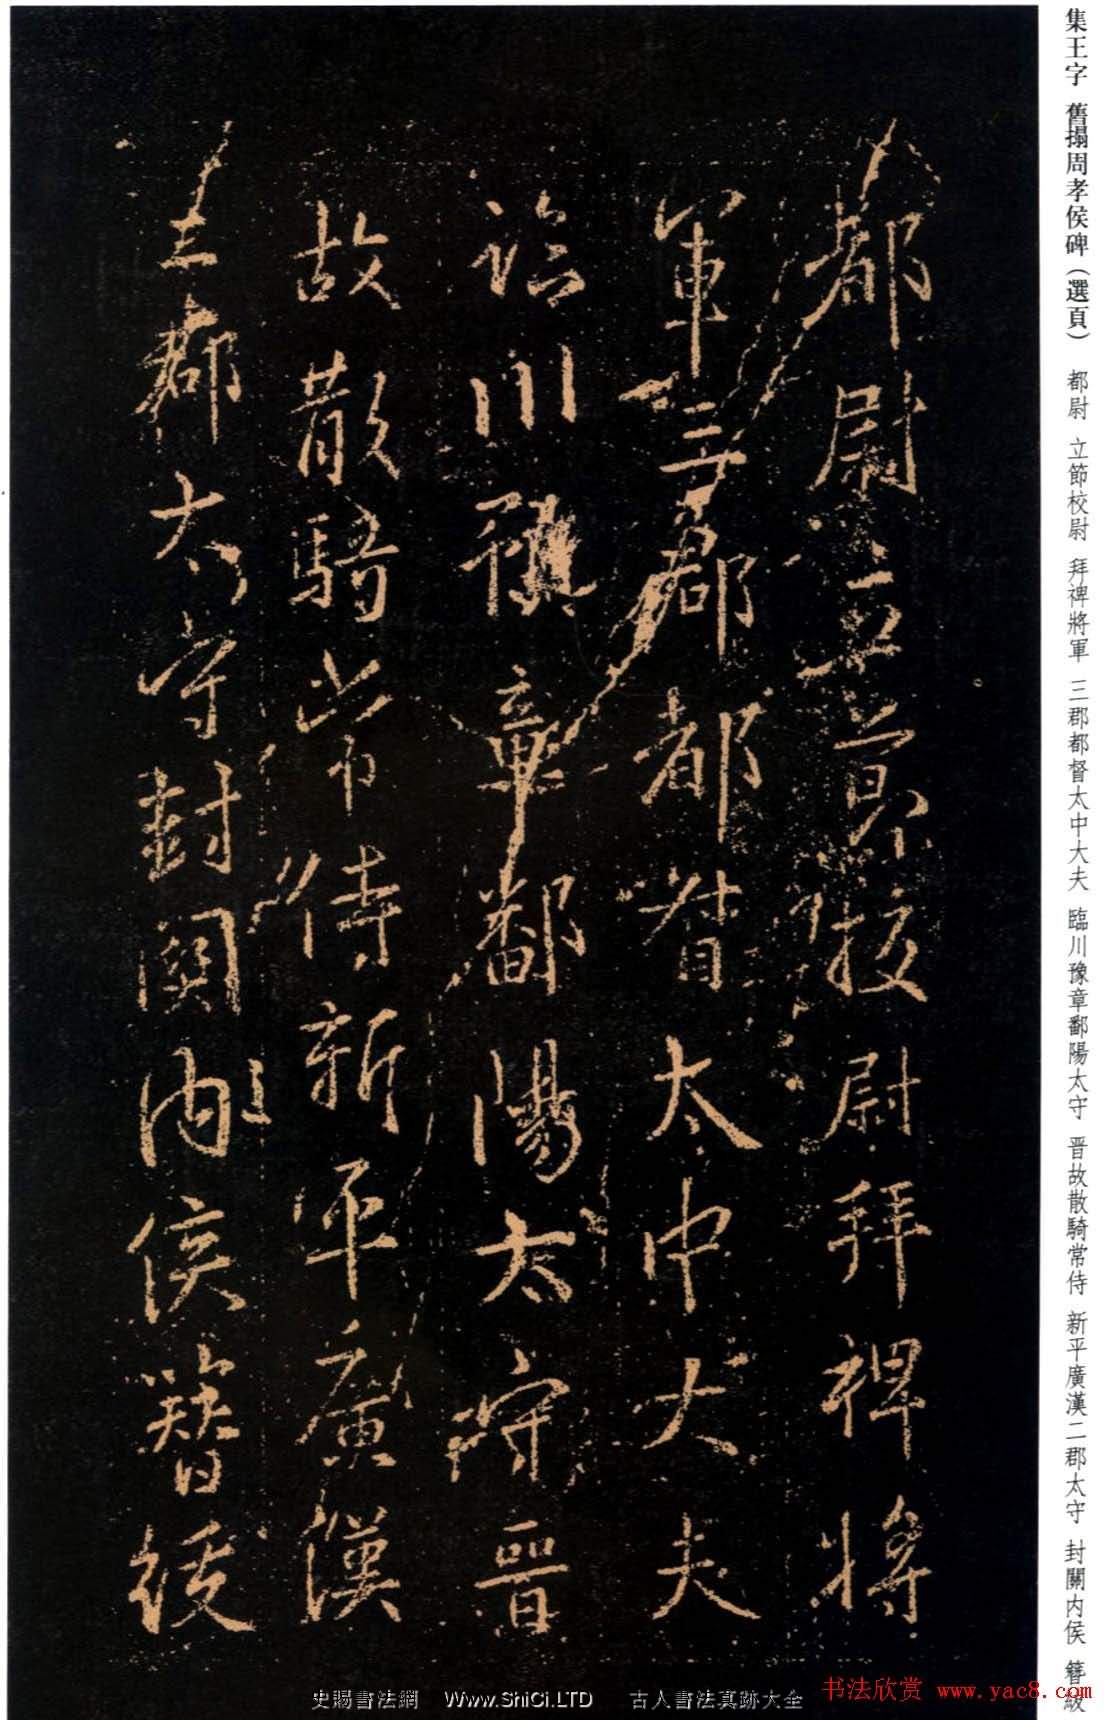 集王字 舊搨周孝侯碑（選頁） 都尉 立節校尉 拜裨將軍 三郡都督太中大夫 臨川豫章鄱陽太守 晋故散騎常侍 新平廣漢二郡太守 封關内侯 簪紱
都尉立節校尉拜裨將
軍三郡都督太中大夫
臨川豫章鄱陽太守晉
故散騎常侍新平廣漢
二郡太守封關内侯簪紱
史賜書法網 Www.ShiCi.LTD 古人書法真跡大全
书法欣赏 www.yac8.com